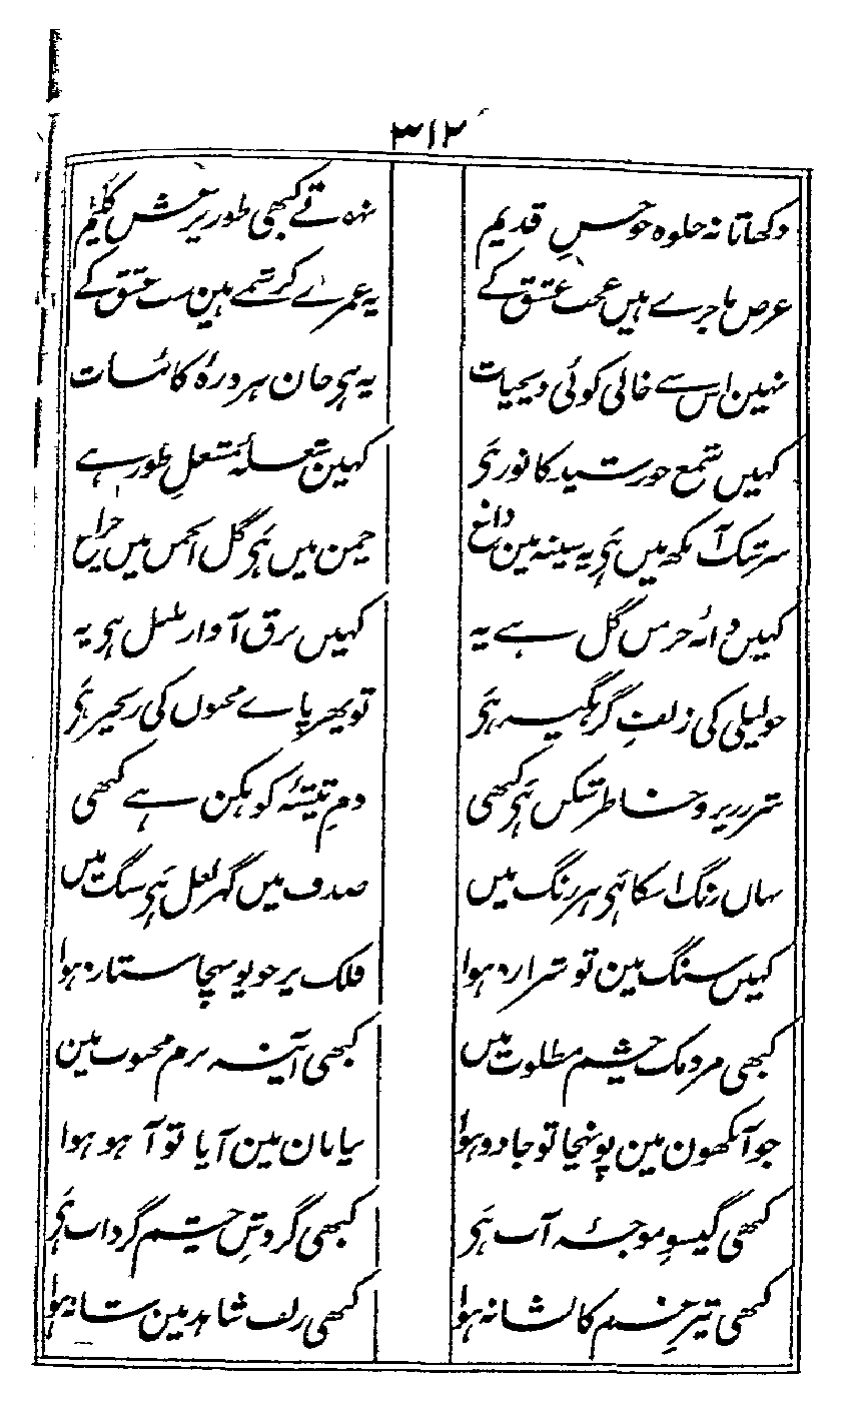 ۳۱۲
دکھاتا نہ جلوہ جو حسنِ قدیم نہ ہوتے کبھی طور پر غش کلیم
غرض ماجرے ہیں عجب عشق کے یہ غمزے کرشمے ہین سب عشق کے
نہین اس سے خالی کوئی ذیحیات یہ ہی جان ہر ذرہٴ کائنات
کہیں شمع خورشید کا نور ہی کہین شعلہٴ مشعلِ طور ہے
سرشک آنکھ میں ہی یہ سینہ مین داغ چمن میں ہی گل انجمن میں چراغ
کہیں دانہٴ خرمن گل ہے یہ کہیں برق آواز بلبل ہی یہ
جو لیلی کی زلفِ گرہگیر ہی تو پھر پاے مجنوں کی زنجیر ہی
شرر ریز و خاطر شکن ہی کبھی دمِ تیشہٴ کوہکن ہے کبھی
یہاں رنگ اسکا ہی ہر رنگ میں صدف میں گہر لعل ہی سنگ میں
کہیں سنگ مین تو شرارہ ہوا فلک پر جو پہونچا ستارہ ہوا
کبھی مردمک چشم مطلوب میں کبھی آئینہ بزم محبوب مین
جو آنکھون مین پونہچا تو جادو ہوا بیابان مین آیا تو آہو ہوا
کبھی گیسوِ موجۂ آب ہی کبھی گردشِ چشم گرداب ہی
کبھی تیرِ کا نشانہ ہوا کبھی زلف شاہد مین شانہ ہوا